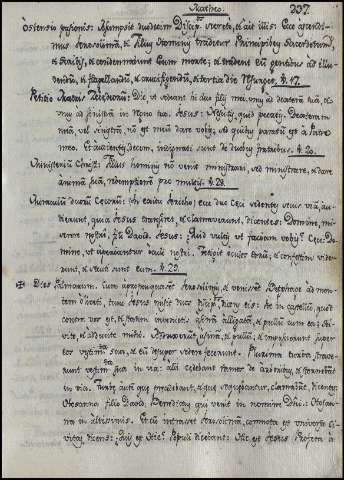 Matheo.
237
ostensio passionis: Assumpsit duodecim Discip. secreto, et ait illis: Ecce ascendi-
mus Jerosolimam, et Filius hominis tradetur Principibus Sacerdotum,
et Scribis, et condemnabunt Eum morte; et tradent eum gentibus ad illu-
dendum, et flagellandum, et crucifigendum, et tertia die resurget. #. 17.
Petitio Matris Zebedaeorum: Dic, ut sedeant hi duo filii mei, unus ad dexteram tuam, et u-
nus ad sinistram in Regno tuo. Jesus: Nescitis, quid petatis; Dexteram
meam, vel sinistram, non est meum dare vobis, sed quibus paratum est a Patre
meo. Et audientes Decem, indignati sunt de duobus fratribus. #. 20.
Ministerium Christi: Filius hominis non venit ministrari, sed ministrare, et dare
animam suam, redemptionem pro multis. #. 28.
Miraculum duorum Caecorum: Ecce duo Caeci sedentes secus viam, au-
dierunt, quia Jesus transiret, et clamaverunt, dicentes: Domine, mise-
rere nostri, fili David. Jesus: Quid vultis ut faciam vobis? Caeci: Domi-
ne, ut aperiantur oculi nostri. Tetigit oculos eorum, et confestim vide-
runt, et secuti sunt eum. #. 29.
✠ Dies Palmarum. Cum appropinquasset Jerosolimis, et venisset Bethphage ad mon-
tem oliveti, tunc Jesus misit duos Discip. dicens eis: Ite in castellum, quod
contra vos est, et statim invenietis asinam alligatam, et pullum cum ea: Sol-
vite, et adducite mihi. Adduxerunt asinam, et pullum, et imposuerunt super
eos vestimenta sua, et eum desuper sedere fecerunt. Plurima turba strave-
runt vestimenta sua in via: alii caedebant ramos de arboribus, et sternebant
in via. Turbae autem quae praecedebant, et quae sequebantur, clamabant, dicentes:
Hosanna filio David: Benedictus qui venit in nomine Domini: Hosan-
na in altissimis. Et cum intrasset Jerosolimam, commota est universa Ci-
vitas, dicens: Quis est Hic? Populi dicebant: Hic est Jesus Propheta a